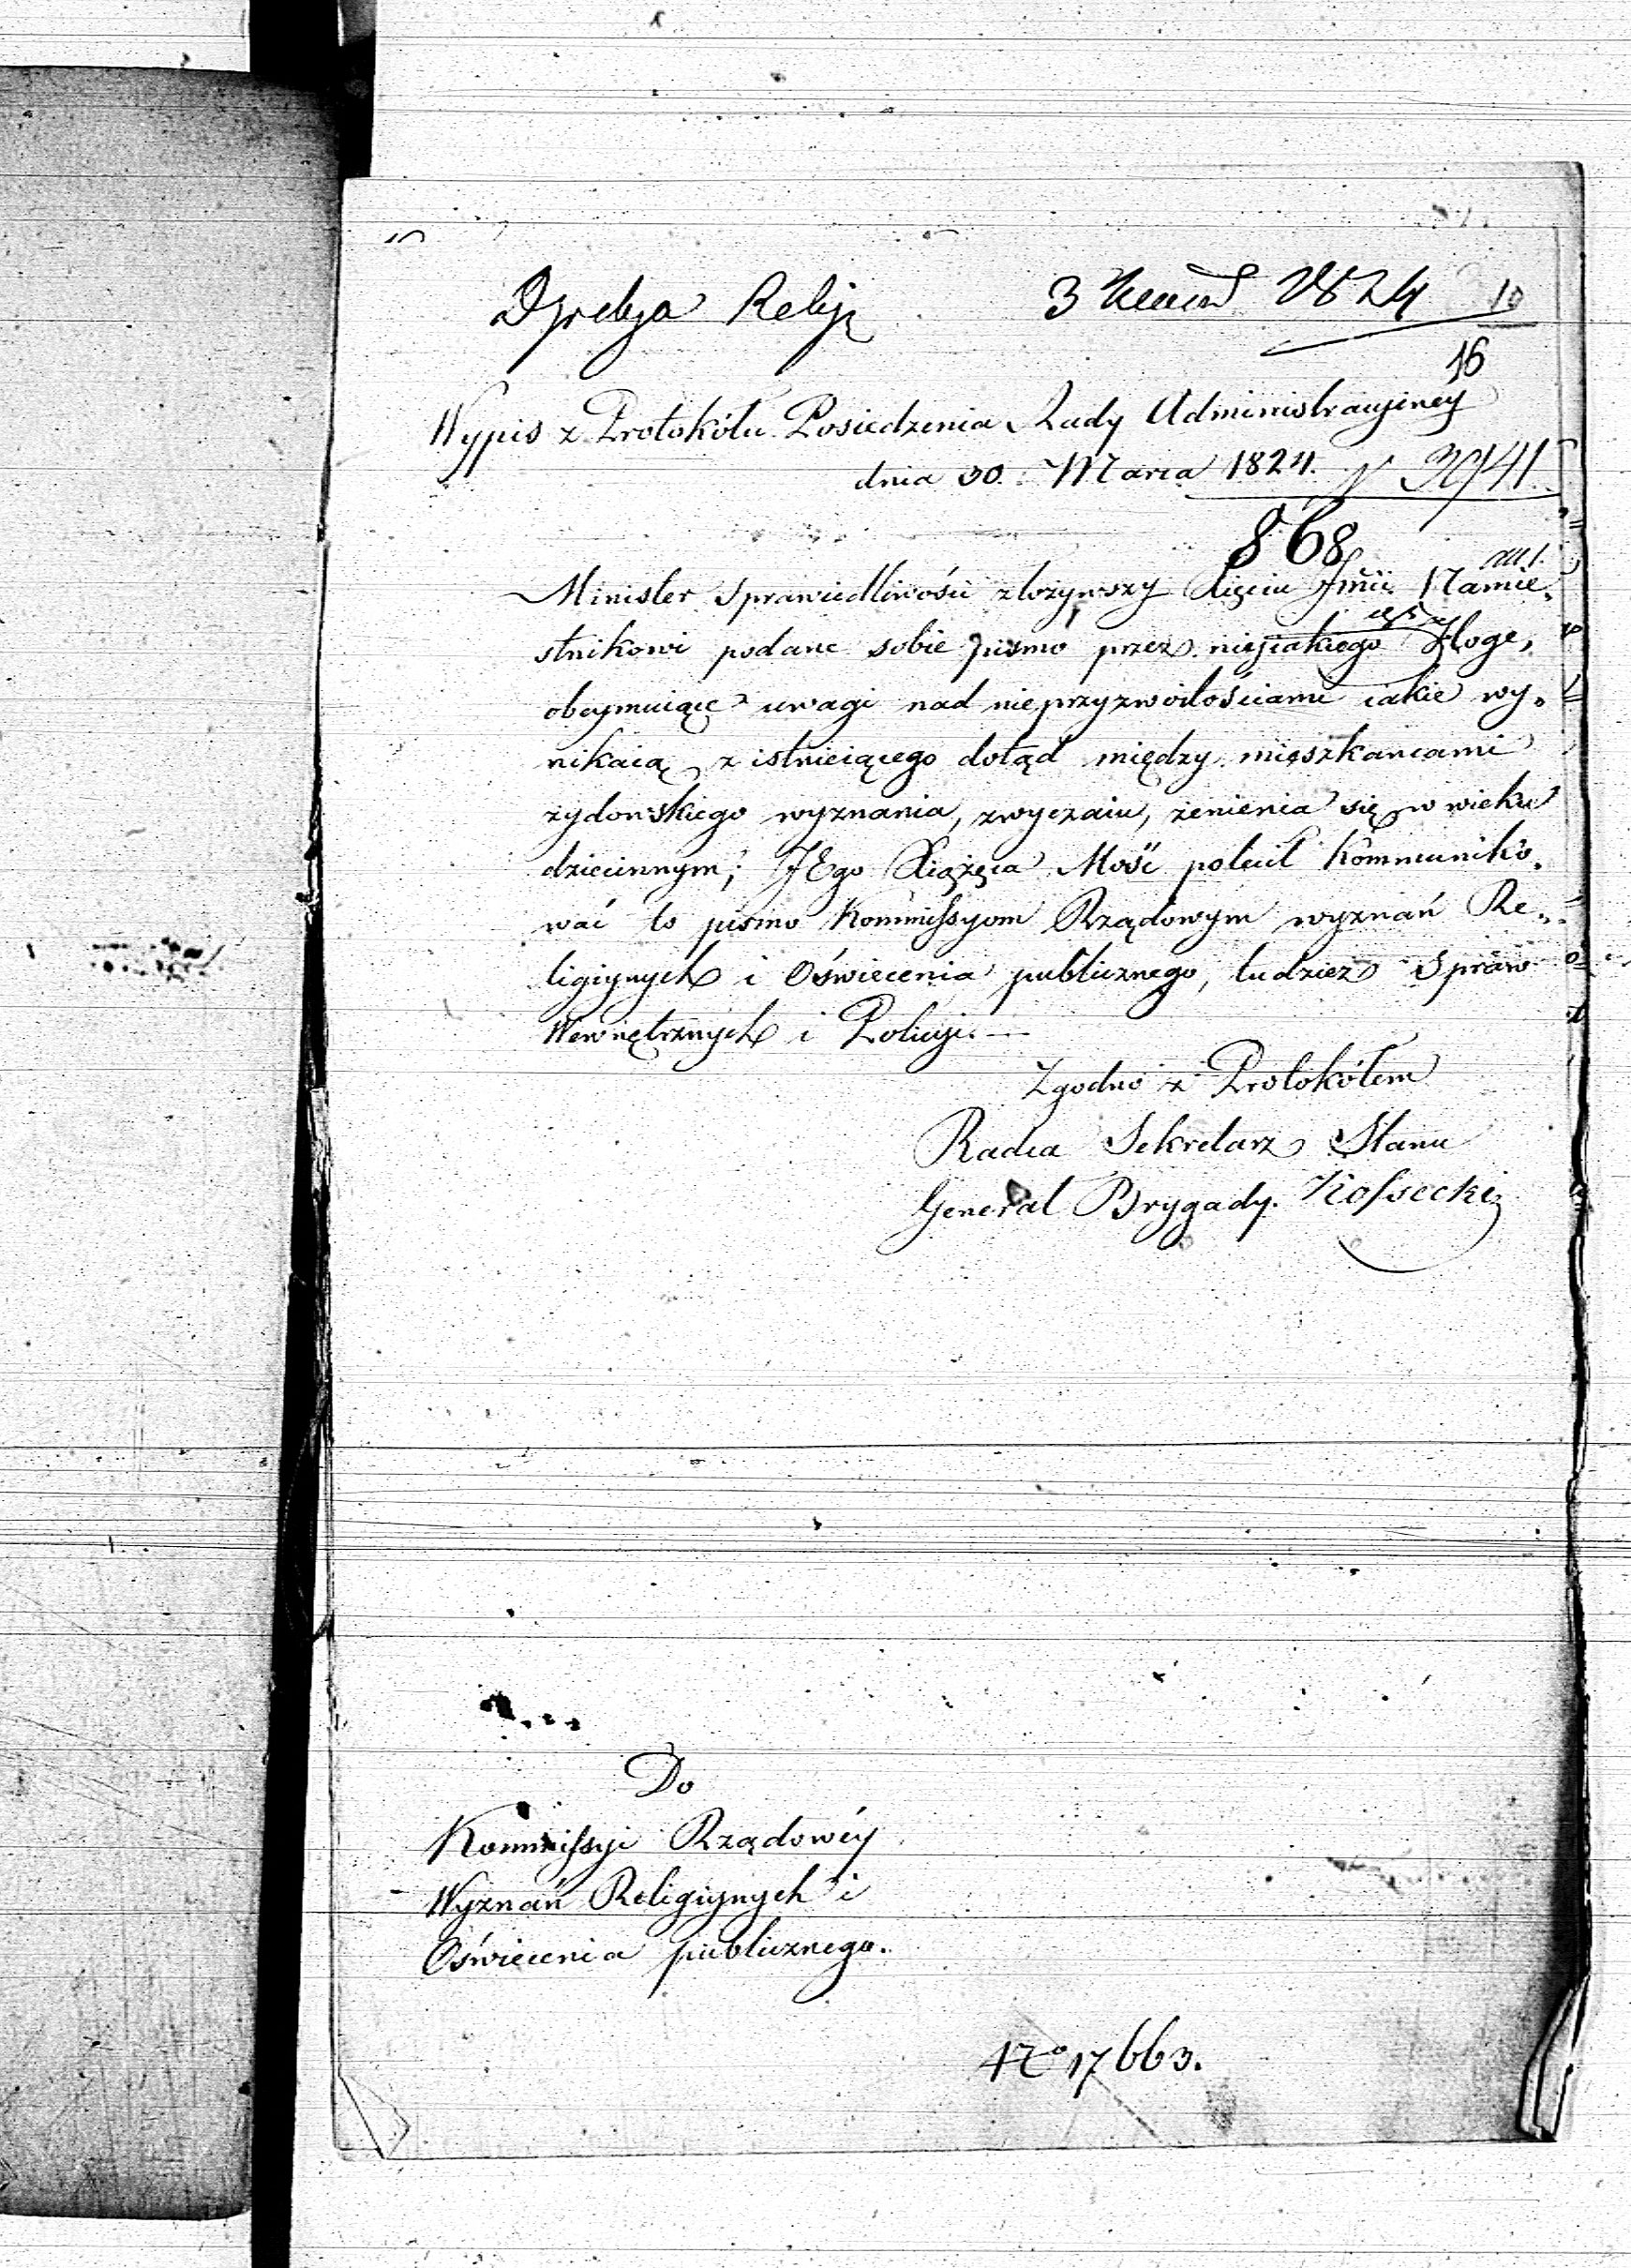 Dyrekcya Religi 3 Kwiet 1824 10
16
Wypis z Protokółu Posiedzenia Rady Administracyiney
dnia 30. Marca 1824. N 3941.
868
Minister Sprawiedliwości złożywszy Xięciu Jmći Namie-
stnikowi podane sobie pismo przez niejakiego
obeymuiące uwagi nad nieprzyzwoitościami iakie wy-
nikaią z istnieiącego dotąd między mieszkancami
żydowskiego wyznania, zwyczaiu, żenienia się w wieku
dziecinnym; JEgo Xiążęca Mość polecił kommuniko-
wać to pismo Kommissyom Rządowym wyznań Re-
ligiynych i Oświecenia publicznego, tudzież Spraw
Wewnętrznych i Policyi.
Zgodno z Protokółem
Radca Sekretarz Stanu
Generał Brygady. Kossecki
Do
Kommissyi Rządowéy
Wyznań Religiynych i
Oświecenia publicznego.
No 17663.